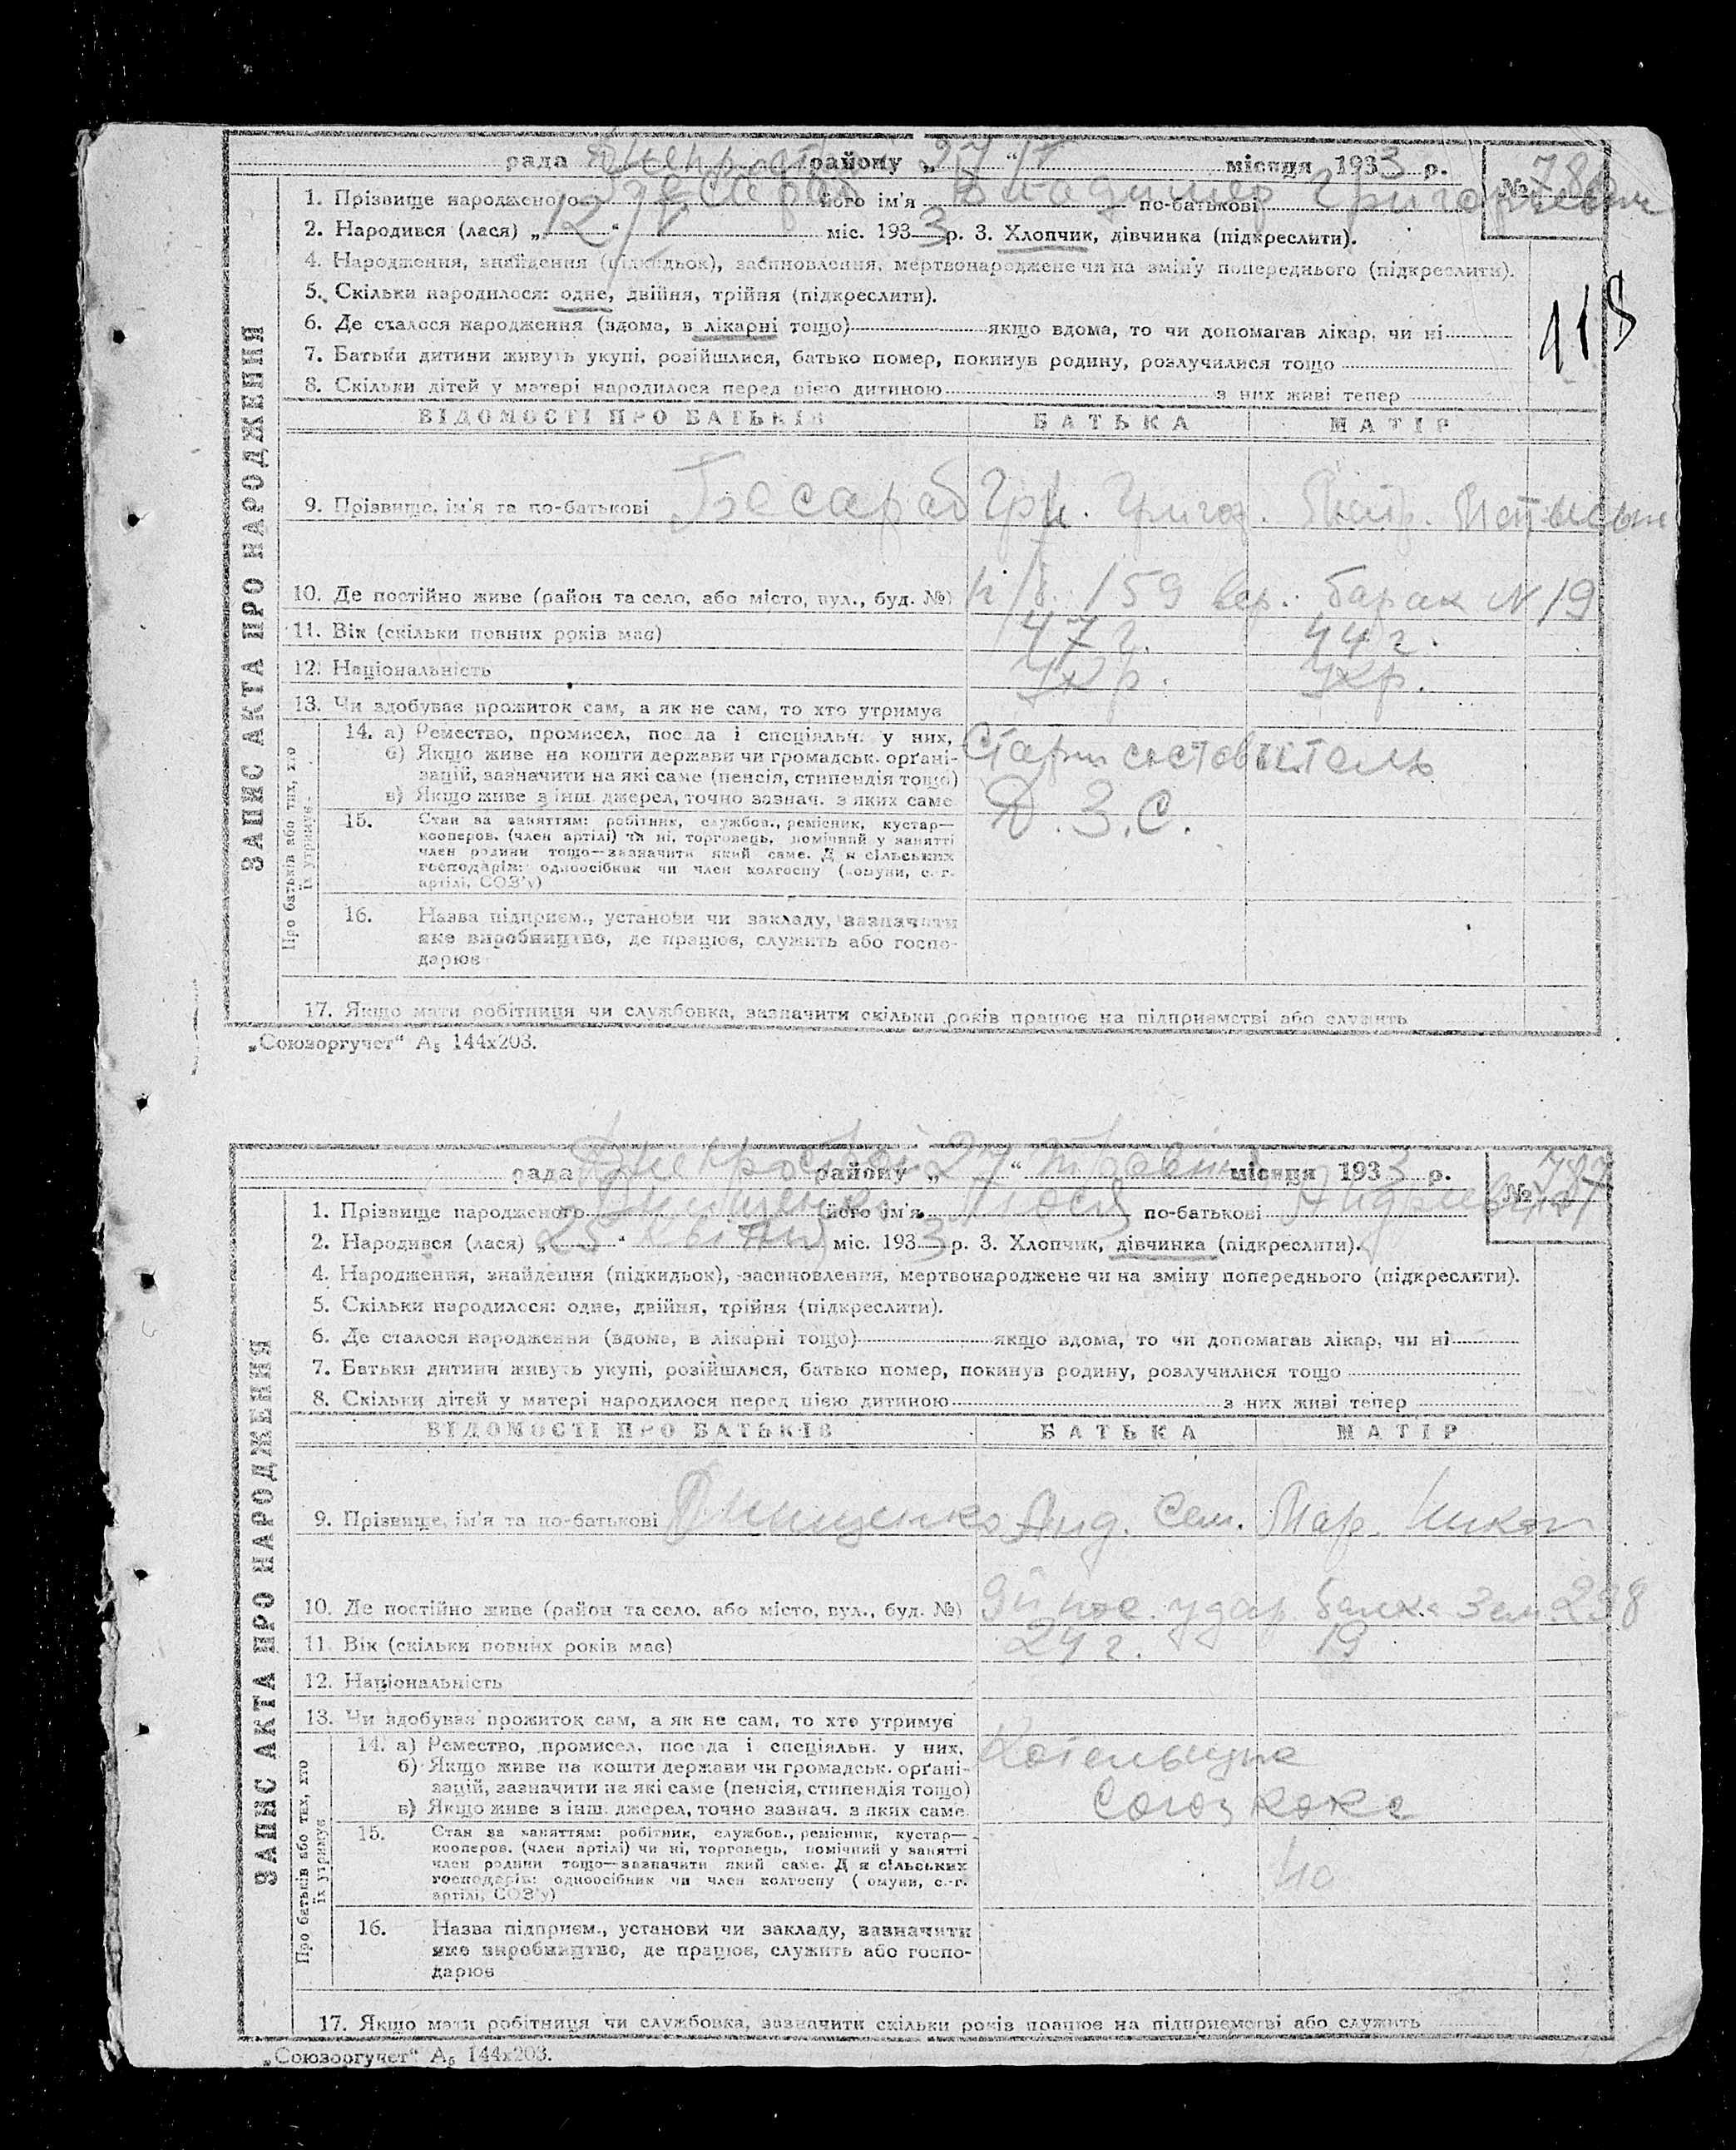 рада району „27“ V місяця 1933 р.
№ 78
1. Прізвище народженого Бесараб його ім'я Владимер по-батькові Григорьевич
2. Народився (лася) „12“ V міс. 1933 р. 3. Хлопчик, дівчинка (підкреслити).
4. Народження, знайдення (підкидьок), засиновлення, мертвонароджене чи на зміну попереднього (підкреслити).
5. Скільки народилося: одне, двійня, трійня (підкреслити).
6. Де сталося народження (вдома, в лікарні тощо) якщо вдома, то чи допомагав лікар, чи ні
118
7. Батьки дитини живуть укупі, розійшлися, батько помер, покинув родину, розлучилися тощо
8. Скільки дітей у матері народилося перед цією дитиною з них живі тепер
ЗАПИС АКТА ПРО НАРОДЖЕННЯ
ВІДОМОСТІ ПРО БАТЬКІВ БАТЬКА МАТІР
9. Прізвище, ім'я та по-батькові Бесараб Гри. Григор.
10. Де постійно живе (район та село, або місто, вул., буд. №) 159 вер. барак N 19
11. Вік (скільки повних років має) 47 г. 44 г.
12. Національність Укр. Укр.
13. Чи здобуває прожиток сам, а як не сам, то хто утримує
Про батьків або тих, хто їх утримує
14. а) Ремество, промисел, посада і спеціяльн. у них,
б) Якщо живе на кошти держави чи громадськ. органі-
зацій, зазначити на які саме (пенсія, стипендія тощо)
в) Якщо живе з інш. джерел, точно зазнач. з яких саме
Старш составитель
Д.З.С.
15. Стан за заняттям: робітник, службов., ремісник, кустар—
кооперов. (член артілі) чи ні, торговець, помічний у занятті
член родини тощо—зазначити який саме. Для сільських
господарів: одноосібник чи член колгоспу (комуни, с.-г.
артілі, СОЗ'у)
16. Назва підприєм., установи чи закладу, зазначити
яке виробництво, де працює, служить або госпо-
дарює
17. Якщо мати робітниця чи службовка, зазначити скільки років працює на підприємстві або служить
„Союзоргучет“ А5 144х203.
рада району „27“ місяця 1933 р.
№ 787
1. Прізвище народженого його ім'я Люся по-батькові
2. Народився (лася) „25“ квітня міс. 1933 р. 3. Хлопчик, дівчинка (підкреслити).
4. Народження, знайдення (підкидьок), засиновлення, мертвонароджене чи на зміну попереднього (підкреслити).
5. Скільки народилося: одне, двійня, трійня (підкреслити).
6. Де сталося народження (вдома, в лікарні тощо) якщо вдома, то чи допомагав лікар, чи ні
7. Батьки дитини живуть укупі, розійшлися, батько помер, покинув родину, розлучилися тощо
8. Скільки дітей у матері народилося перед цією дитиною з них живі тепер
ЗАПИС АКТА ПРО НАРОДЖЕННЯ
ВІДОМОСТІ ПРО БАТЬКІВ БАТЬКА МАТІР
9. Прізвище, ім'я та по-батькові Анд. Сем. Мар. Никол
10. Де постійно живе (район та село, або місто, вул., буд. №) удар балка Зем. 238
11. Вік (скільки повних років має) 24 г. 19
12. Національність
13. Чи здобуває прожиток сам, а як не сам, то хто утримує
Про батьків або тих, хто їх утримує
14. а) Ремество, промисел, посада і спеціяльн. у них,
б) Якщо живе на кошти держави чи громадськ. органі-
зацій, зазначити на які саме (пенсія, стипендія тощо)
в) Якщо живе з інш. джерел, точно зазнач. з яких саме
Котельщик
Союзкокс
15. Стан за заняттям: робітник, службов., ремісник, кустар—
кооперов. (член артілі) чи ні, торговець, помічний у занятті
член родини тощо—зазначити який саме. Для сільських
господарів: одноосібник чи член колгоспу (комуни, с.-г.
артілі, СОЗ'у)
16. Назва підприєм., установи чи закладу, зазначити
яке виробництво, де працює, служить або госпо-
дарює
17. Якщо мати робітниця чи службовка, зазначити скільки років працює на підприємстві або служить
„Союзоргучет“ А5 144х203.